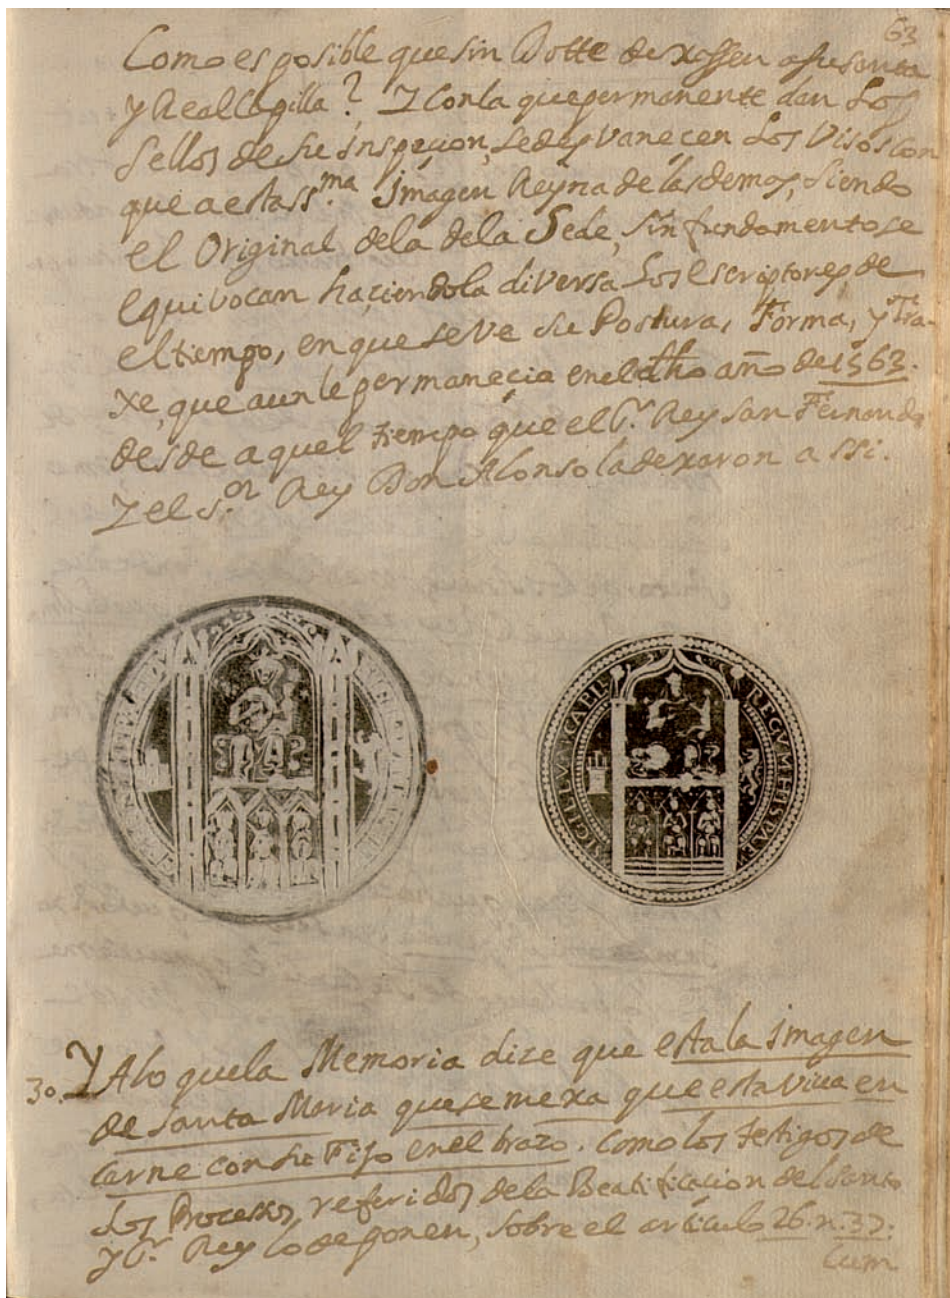 63
Como es posible que sin Dotte dexassen a su santa
y Real Capilla? Y con la que permanente dan Los
Sellos de su inspecion, se desvanecen Los Visos con
que a esta ss.ma Imagen Reyna de las demas, siendo
el Original dela dela Sede, sin fundamento se
equivocan haciendola diversa Los Escriptores, de
el tiempo, en que se ve su Postura, Forma, y Tra-
xe, que aun le permanecia en el dho año de 1563.
desde aquel tiempo que el Sr. Rey san Fernando
Y el S.or Rey Don Alonso la dexaron assi.
SIGILLUV CAPEL REGVM HISPA
30. Y Alo que la Memoria dize que esta la imagen
de Santa Maria que semexa que esta viva en
Carne con su Fijo en el brazo. Como los testigos de
Los Processos, referidos dela Beatificacion del Santo
y Sr. Rey lo deponen, sobre el articulo 26. n. 37.
Cum